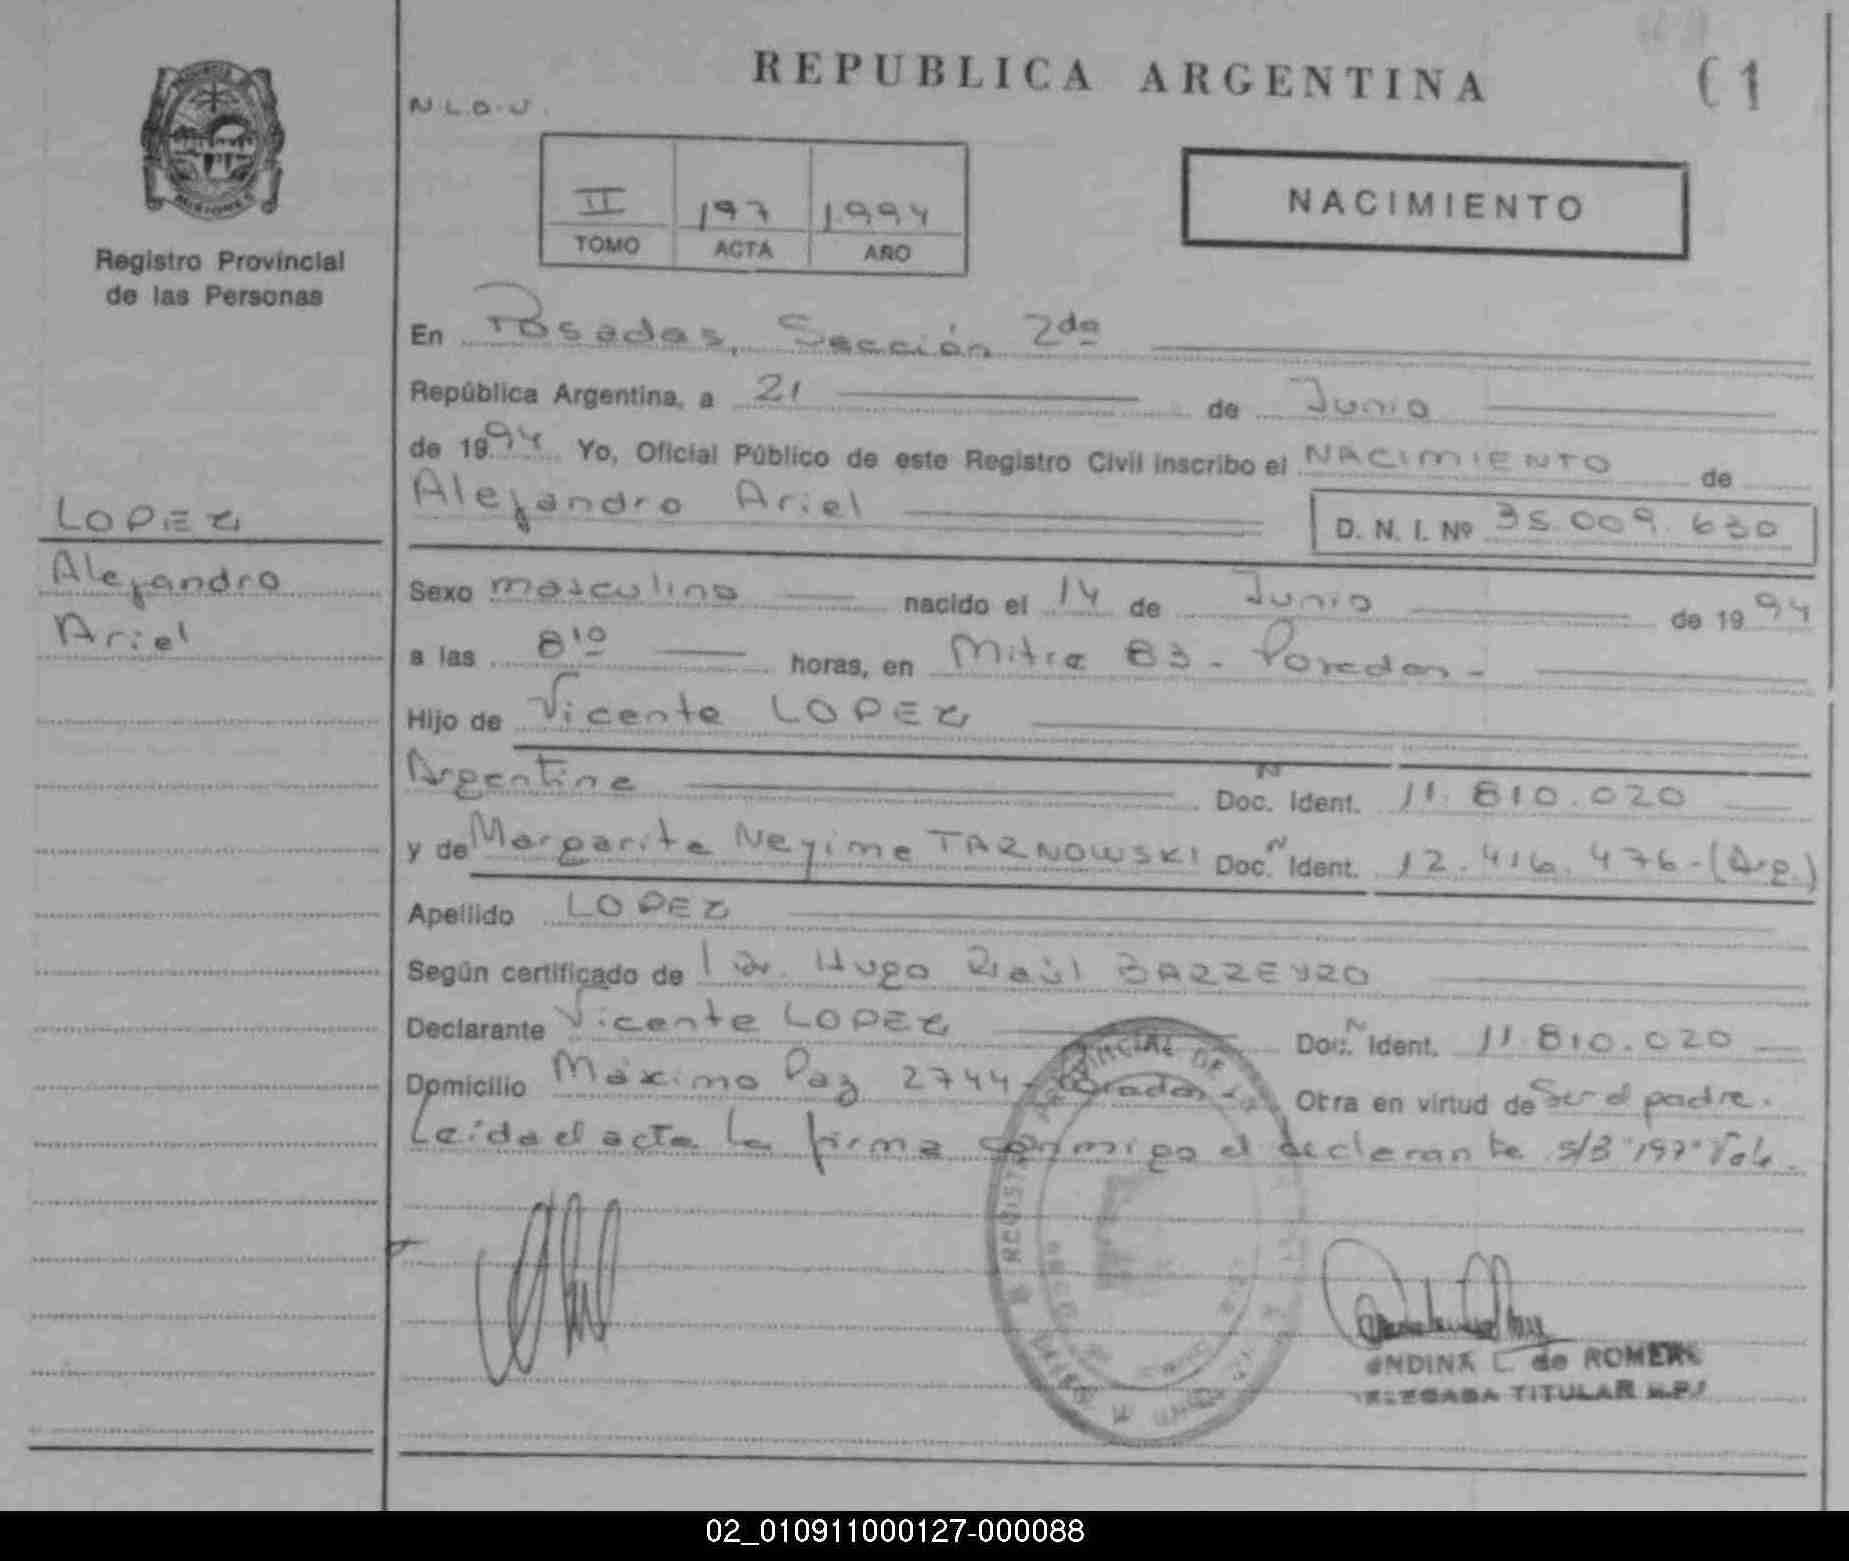 REPUBLICA ARGENTINA
61
N.L.O.U.
II 197 1.994
TOMO ACTA AÑO
NACIMIENTO
Registro Provincial
de las Personas
LOPEZ
Alejandro
Ariel
En Posadas, Sección 2da
República Argentina, a 21 de Junio
de 1994 Yo, Oficial Público de este Registro Civil inscribo el NACIMIENTO de
Alejandro Ariel D. N. I. Nº 35.009.630
Sexo masculino nacido el 14 de Junio de 1994
a las 8 10 horas, en Mitre 83 - Posadas -
Hijo de Vicente LOPEZ
Argentina Doc. Ident. 11.810.020
y de Margarita Neyime TARNOWSKI Doc. Ident. 12.416.476-(Arg.)
Apellido LOPEZ
Según certificado de Dr. Hugo Raúl BARREYRO
Declarante Vicente LOPEZ Doc. Ident. 11.810.020
Domicilio Máximo Paz 2744 - Posadas - Otra en virtud de Ser el padre.
Leída el acta la firma conmigo el declarante s/B "197" Vale.
L. de ROMERO
TITULAR
02_010911000127-000088